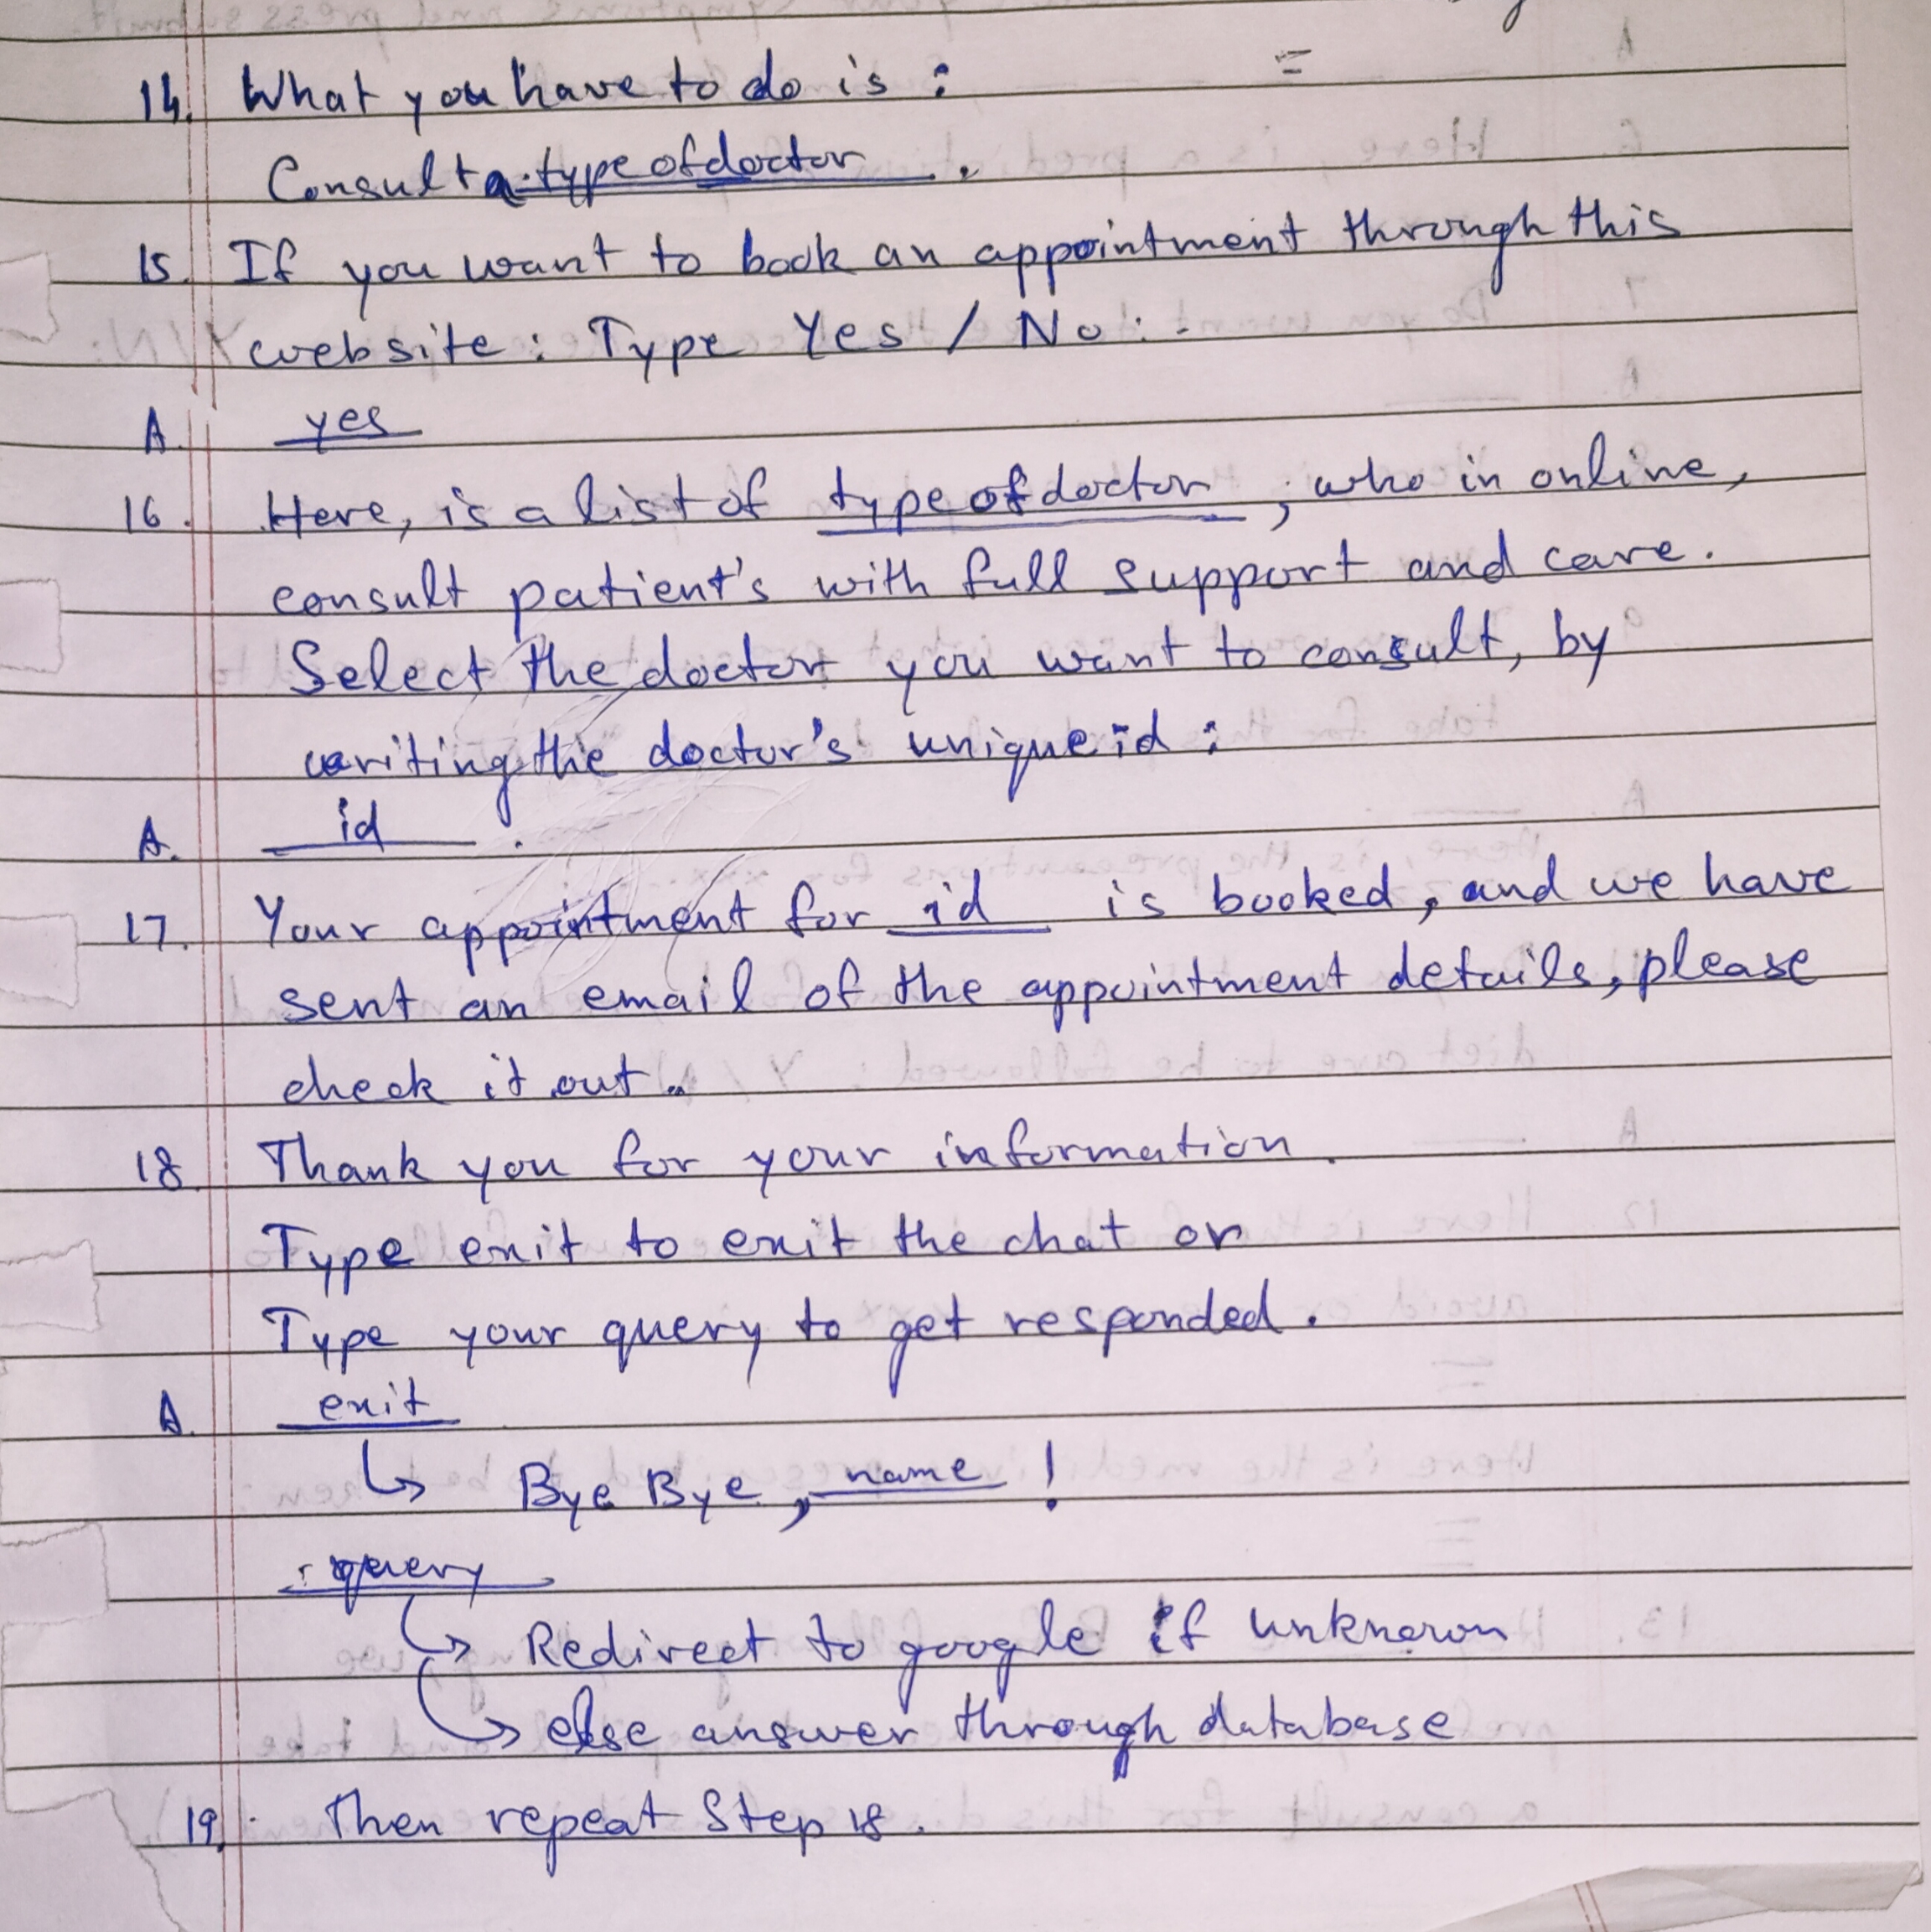 14. What you have to do is :
Consult a typeofdoctor .
15. If you want to book an appointment through this
website : Type Yes / No : -
A. yes
16. Here, is a list of typeofdoctor ; who in online,
consult patient's with full support and care.
Select the doctor you want to consult, by
writing the doctor's unique id :
A. id .
17. Your appointment for id is booked, and we have
sent an email of the appointment details, please
check it out.
18. Thank you for your information.
Type exit to exit the chat or
Type your query to get responded.
A. exit
↳ Bye Bye, name !
query
↳ Redirect to google if unknown
↳ else answer through database
19. Then repeat Step 18.